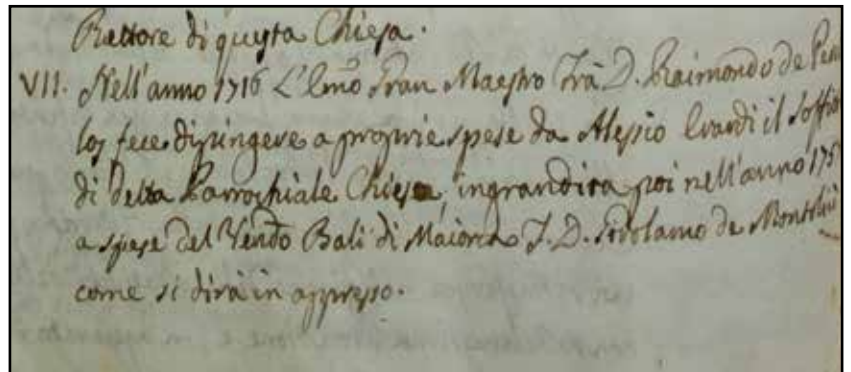 Rettore di questa Chiesa.
VII. Nell'anno 1716 L'Emo Gran Maestro Frà D. Raimondo de Pere
los fece dipingere a proprie spese da Alessio Erardi il Soffit
di detta Parrochiale Chiesa, ingrandita poi nell'anno 175
a spese del Vendo Balì di Maiorca F. D. Girolamo de Montoliù
come si dirà in appresso.